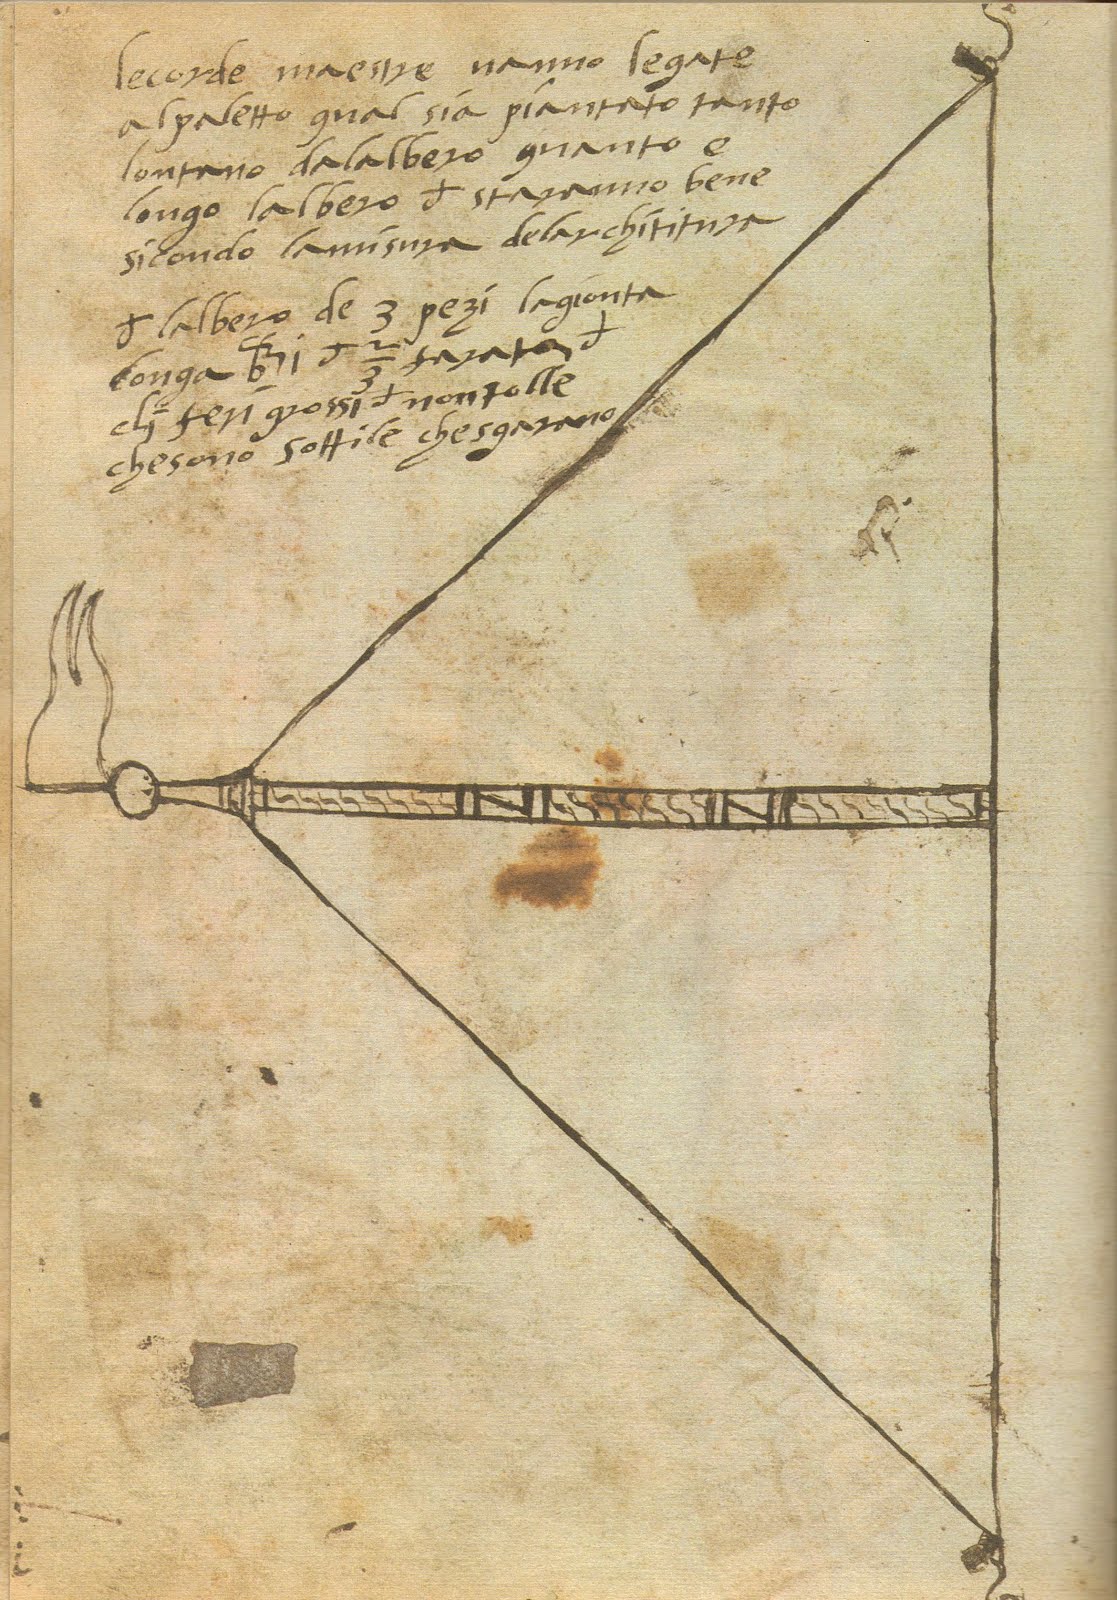 lecorde maestre vanno legate
alpaletto qual sia piantato tanto
lontano dalalbero quanto e
longo lalbero & staranno bene
sicondo lamisura delarchititura
& lalbero de 3 pezi lagionta
longa & 2/3 &
feri grossi & non tolle
che sono sottile che sgarano